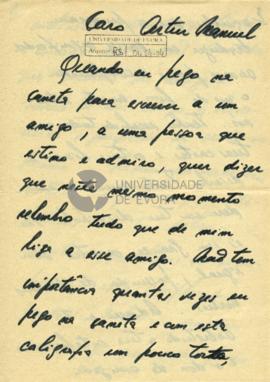 Caro Artur Manuel
UNIVERSIDADE DE ÉVORA
Quando eu pego na
caneta para escrever a um
amigo, a uma pessoa que
estimo e admiro, quer dizer
que neste mesmo momento
UNIVERSIDADE
DE ÉVORA
relembro tudo que de mim
liga a esse amigo. Não tem
importância quantas vezes eu
pego na caneta e com esta
caligrafia um pouco torta,